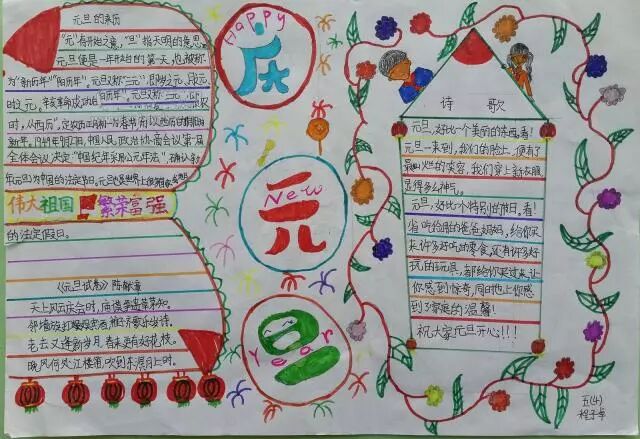 元旦的来历
"元"有开始之意,"旦"指天明的意思
元旦便是一年开始的第一天,也被称
为"新历年""阳历年"。元旦又称"三元",即岁之元、月元、
时之元,辛亥革命成功
时,从西历",定农历正月初一为春节,而以西历的
新年。1949年9月27日,中国人民政治协商会议第一届
全体会议决定"中国纪年采用公元年法",确认
年元旦为中国的法定节日。元旦
伟大祖国 繁荣富强
的法定假日。
《元旦试笔》陈献章
天上风云庆会时,庙谟争遣草茅知。
邻墙旋打娱宾酒,稚子齐歌乐岁诗。
老去又逢新岁月,春来更有好花枝。
晚风何处江楼笛,吹到东溟月上时。
Happy
庆
New
元
Year
旦
诗 歌
元旦,好比一个美丽的东西,看!
元旦一来到,我们的脸上,便有了
最灿烂的笑容,我们穿上新衣服
显得多么神气。
元旦,好比一个特别的节日,看!
省吃俭用的爸爸妈妈,给你买
来许多好吃的零食,还有许多好
玩的玩具,都给你买过来,让
你感到惊奇,同时也让你感
到了家庭的温馨!
祝大家元旦开心!!!
五(4)